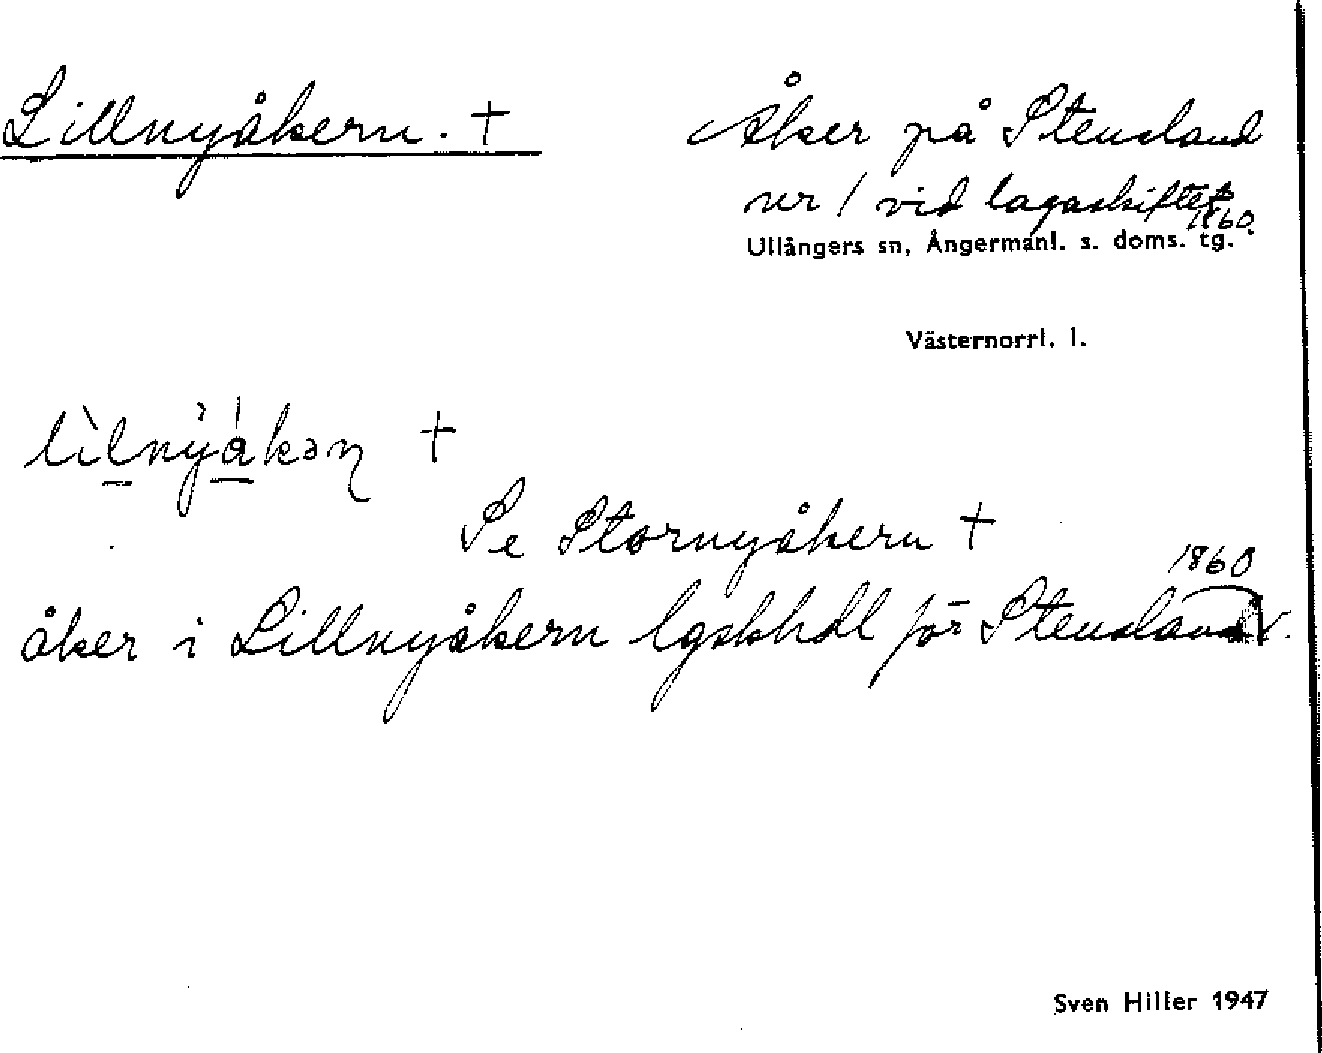 Lillnyåkern. +
Åker på Stensland
nr 1 vid lagaskiftet
1860.
Ullångers sn, Ångermanl. s. doms. tg.
Västernorrl. l.
lìlnỳåkəɳ +
Se Stornyåkern +
1860
åker i Lillnyåkern lgskhdl för Stensland
Sven Hiller 1947